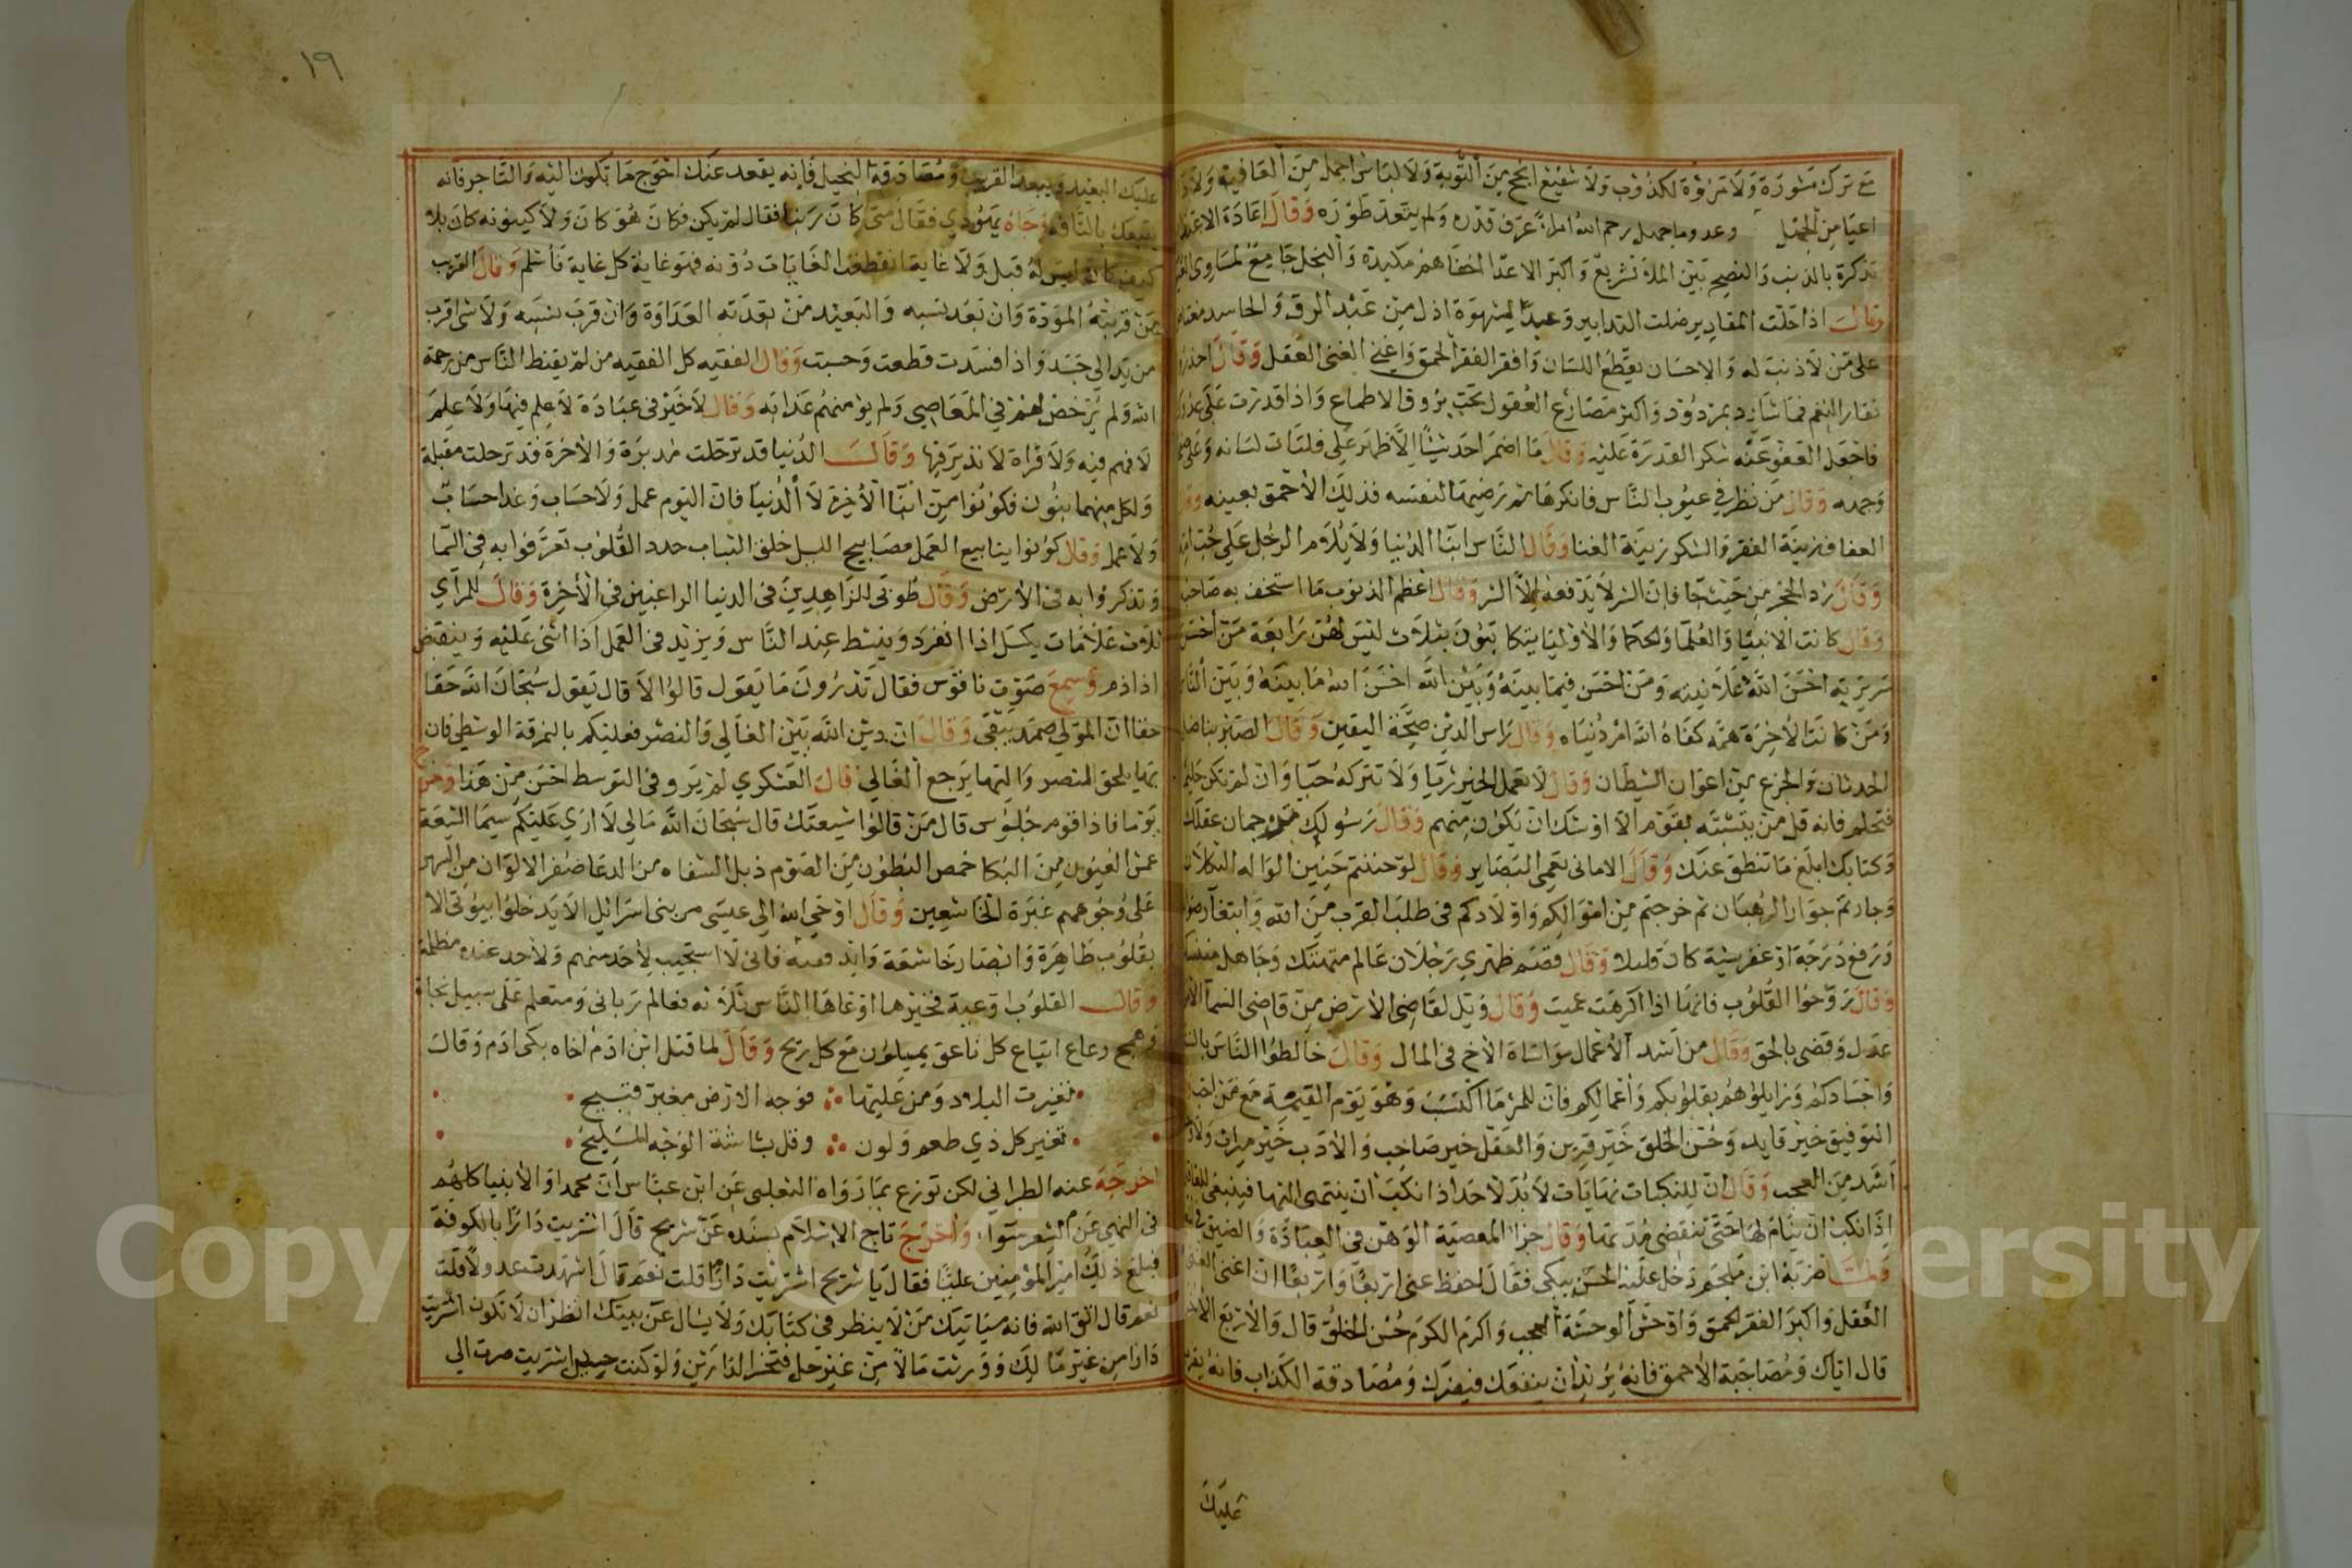 مع ترك مشورة ولا مروة لكذوب ولا شفيع انجح من التوبة ولا لباس اجمل من العافية ولا
اعيا من الجهل وعدو ما جهل رحم الله امرا عرف قدره ولم يتعد طوره وقال اعادة الاعتذار
تذكرة بالذنب والنصح بين الملا تقريع واكبر الاعدا اخفاهم مكيدة والبخل جامع لمساوى
وقال اذا حلت المقادير ضلت التدابير وعبد الشهوة اذل من عبد الرق والحاسد مغتاظ
على من لا ذنب له والاحسان يقطع اللسان وافقر الفقر الحمق واغنى الغنى العقل وقال احذروا
نفار النعم فما شارد بمردود واكثر مصارع العقول تحت بروق الاطماع واذا قدرت على عدوك
فاجعل العفو عنه شكر القدرة عليه وقال ما اضمر احد شيا الا ظهر على فلتات لسانه وعلى صفحات
وجهه وقال من نظر في عيوب الناس فانكرها ثم رضيها لنفسه فذلك الاحمق بعينه
العفاف زينة الفقر والشكر زينة الغنا وقال الناس ابنا الدنيا ولا يلام الرجل على حب امه
وقال رد الحجر من حيث جا فان الشر لا يدفعه الا الشر وقال اعظم الذنوب ما استخف به صاحبه
وقال كانت الانبيا والعلما والحكما والاوليا يتكاتبون بثلاث ليس لهن رابعة من احسن
سريرته احسن الله علانيته ومن احسن فيما بينه وبين الله احسن الله ما بينه وبين الناس
ومن كانت الاخرة همه كفاه الله امر دنياه وقال راس الدين صحة اليقين وقال الصبر يناضل
الحدثان والجزع من اعوان الشيطان وقال لا تعمل الخير ريا ولا تتركه حيا وان لم تكن حليما
فتحلم فانه قل من يتشبه بقوم الا اوشك ان يكون منهم وقال رسولك ترجمان عقلك
وكتابك ابلغ ما تنطق عنك وقال الامانى تعمى البصاير وقال لو حننتم حنين الواله الثكلان
وجارتم جوار الرهبان ثم خرجتم من اموالكم واولادكم فى طلب القرب من الله وابتغا رضوانه
ورفع درجة او غفر سيئة كان قليلا وقال قصم ظهري رجلان عالم متهتك وجاهل متنسك
وقال روحوا القلوب فانها اذا اكرهت عميت وقال ويل لقاضى الارض من قاضى السما الا من
عدل وقضى بالحق وقال من اشد الاعمال مواساة الاخ فى المال وقال خالطوا الناس بالسنتكم
واجسادكم وزايلوهم بقلوبكم واعمالكم فان للمرء ما اكتسب وهو يوم القيمة مع من احب
التوفيق خير قايد وحسن الخلق خير قرين والعقل خير صاحب والادب خير ميراث ولا
اشد من العجب وقال ان للنكبات نهايات لا بد لاحد اذا نكب ان ينتهى اليها فينبغى للعاقل
اذا نكب ان ينام لها حتى تنقضى مدتها وقال جزا المعصية الوهن فى العبادة والضيق فى
ولما ضربه ابن ملجم دخل عليه الحسن يبكى فقال احفظ عنى اربعا واربعا ان اغنى الغنى
العقل واكبر الفقر الحمق واوحش الوحشة العجب واكرم الكرم حسن الخلق قال والاربع الاخر
قال اياك ومصاحبة الاحمق فانه يريد ان ينفعك فيضرك ومصادقة الكذاب فانه يقرب
عليك
١٩
عليك البعيد ويبعد القريب ومصادقة البخيل فانه يقعد عنك احوج ما تكون اليه والتاجر فانه
يبيعك بالتافه وجاه يهودي فقال متى كان ربنا فقال لم يكن فكان هو كان ولا كينونه كان بلا
كيف كان ليس له قبل ولا غاية انقطعت الغايات دونه فهو غاية كل غاية فاسلم وقال القريب
من قربته المودة وان بعد نسبه والبعيد من بعدته العداوة وان قرب نسبه ولا شى اقرب
من يد الى جسد واذا فسدت قطعت وحسبت وقال الفقيه كل الفقيه من لم يقنط الناس من رحمة
الله ولم يرخص لهم في المعاصي ولم يؤمنهم عذابه وقال لا خير فى عبادة لا علم فيها ولا علم
لا فهم فيه ولا قراة لا تدبر فيها وقال الدنيا قد ترحلت مدبرة والاخرة قد ترحلت مقبلة
ولكل منهما بنون فكونوا من ابنا الاخرة لا الدنيا فان اليوم عمل ولا حساب وغدا حساب
ولا عمل وقال كونوا ينابيع العمل مصابيح الليل خلق الثياب جدد القلوب تعرفوا به فى السما
وتذكروا به فى الارض وقال طوبى للزاهدين فى الدنيا الراغبين فى الاخرة وقال للمرآي
ثلاث علامات يكسل اذا انفرد وينشط عند الناس ويزيد فى العمل اذا اثنى عليه وينقص
اذا ذم وسمع صوت ناقوس فقال تدرون ما يقول قالوا لا قال يقول سبحان الله حقا
حقا ان المولى صمد يبقى وقال ان دين الله بين الغالي والمقصر فعليكم بالنمرقة الوسطى فان
بها يلحق المقصر واليها يرجع الغالي قال العسكري لم يرو فى التوسط احسن من هذا وخرج
يوما فاذا قوم جلوس قال من قالوا شيعتك قال سبحان الله مالي لا ارى عليكم سيما الشيعة
عمش العيون من البكا خمص البطون من الصوم ذبل الشفاه من الدعا صفر الالوان من السهر
على وجوههم غبرة الخاشعين وقال اوحى الله الى عيسى مر بنى اسرائيل لا يدخلوا بيوتى الا
بقلوب طاهرة وابصار خاشعة وايد نقية فانى لا استجيب لاحد منهم ولاحد عنده مظلمة
وقال القلوب اوعية فخيرها اوعاها الناس ثلاثه فعالم ربانى ومتعلم على سبيل نجاة
وهمج رعاع اتباع كل ناعق يميلون مع كل ريح وقال لما قتل ابن ادم اخاه بكى ادم وقال
تغيرت البلاد ومن عليها فوجه الارض مغبر قبيح
تغير كل ذي طعم ولون وقل بشاشة الوجه المليح
اخرجه عنه الطبراني لكن توزع بما رواه الثعلبى عن ابن عباس ان محمدا والانبيا كلهم
فى النهي عن الشعر سوا واخرج تاج الاسلام بسنده عن شريح قال اشتريت دارا بالكوفة
فبلغ ذلك امير المؤمنين عليا فقال يا شريح اشتريت دارا قلت نعم قال اشهدت عدولا قلت
نعم قال اتق الله فانه سياتيك من لا ينظر في كتابك ولا يسال عن بينتك انظر ان لا تكون اشتريت
دارا من غير مالك ووريت مالا من غير حل فتخسر الدارين ولو كنت حين اشتريت صرت الي
Copyright © King University